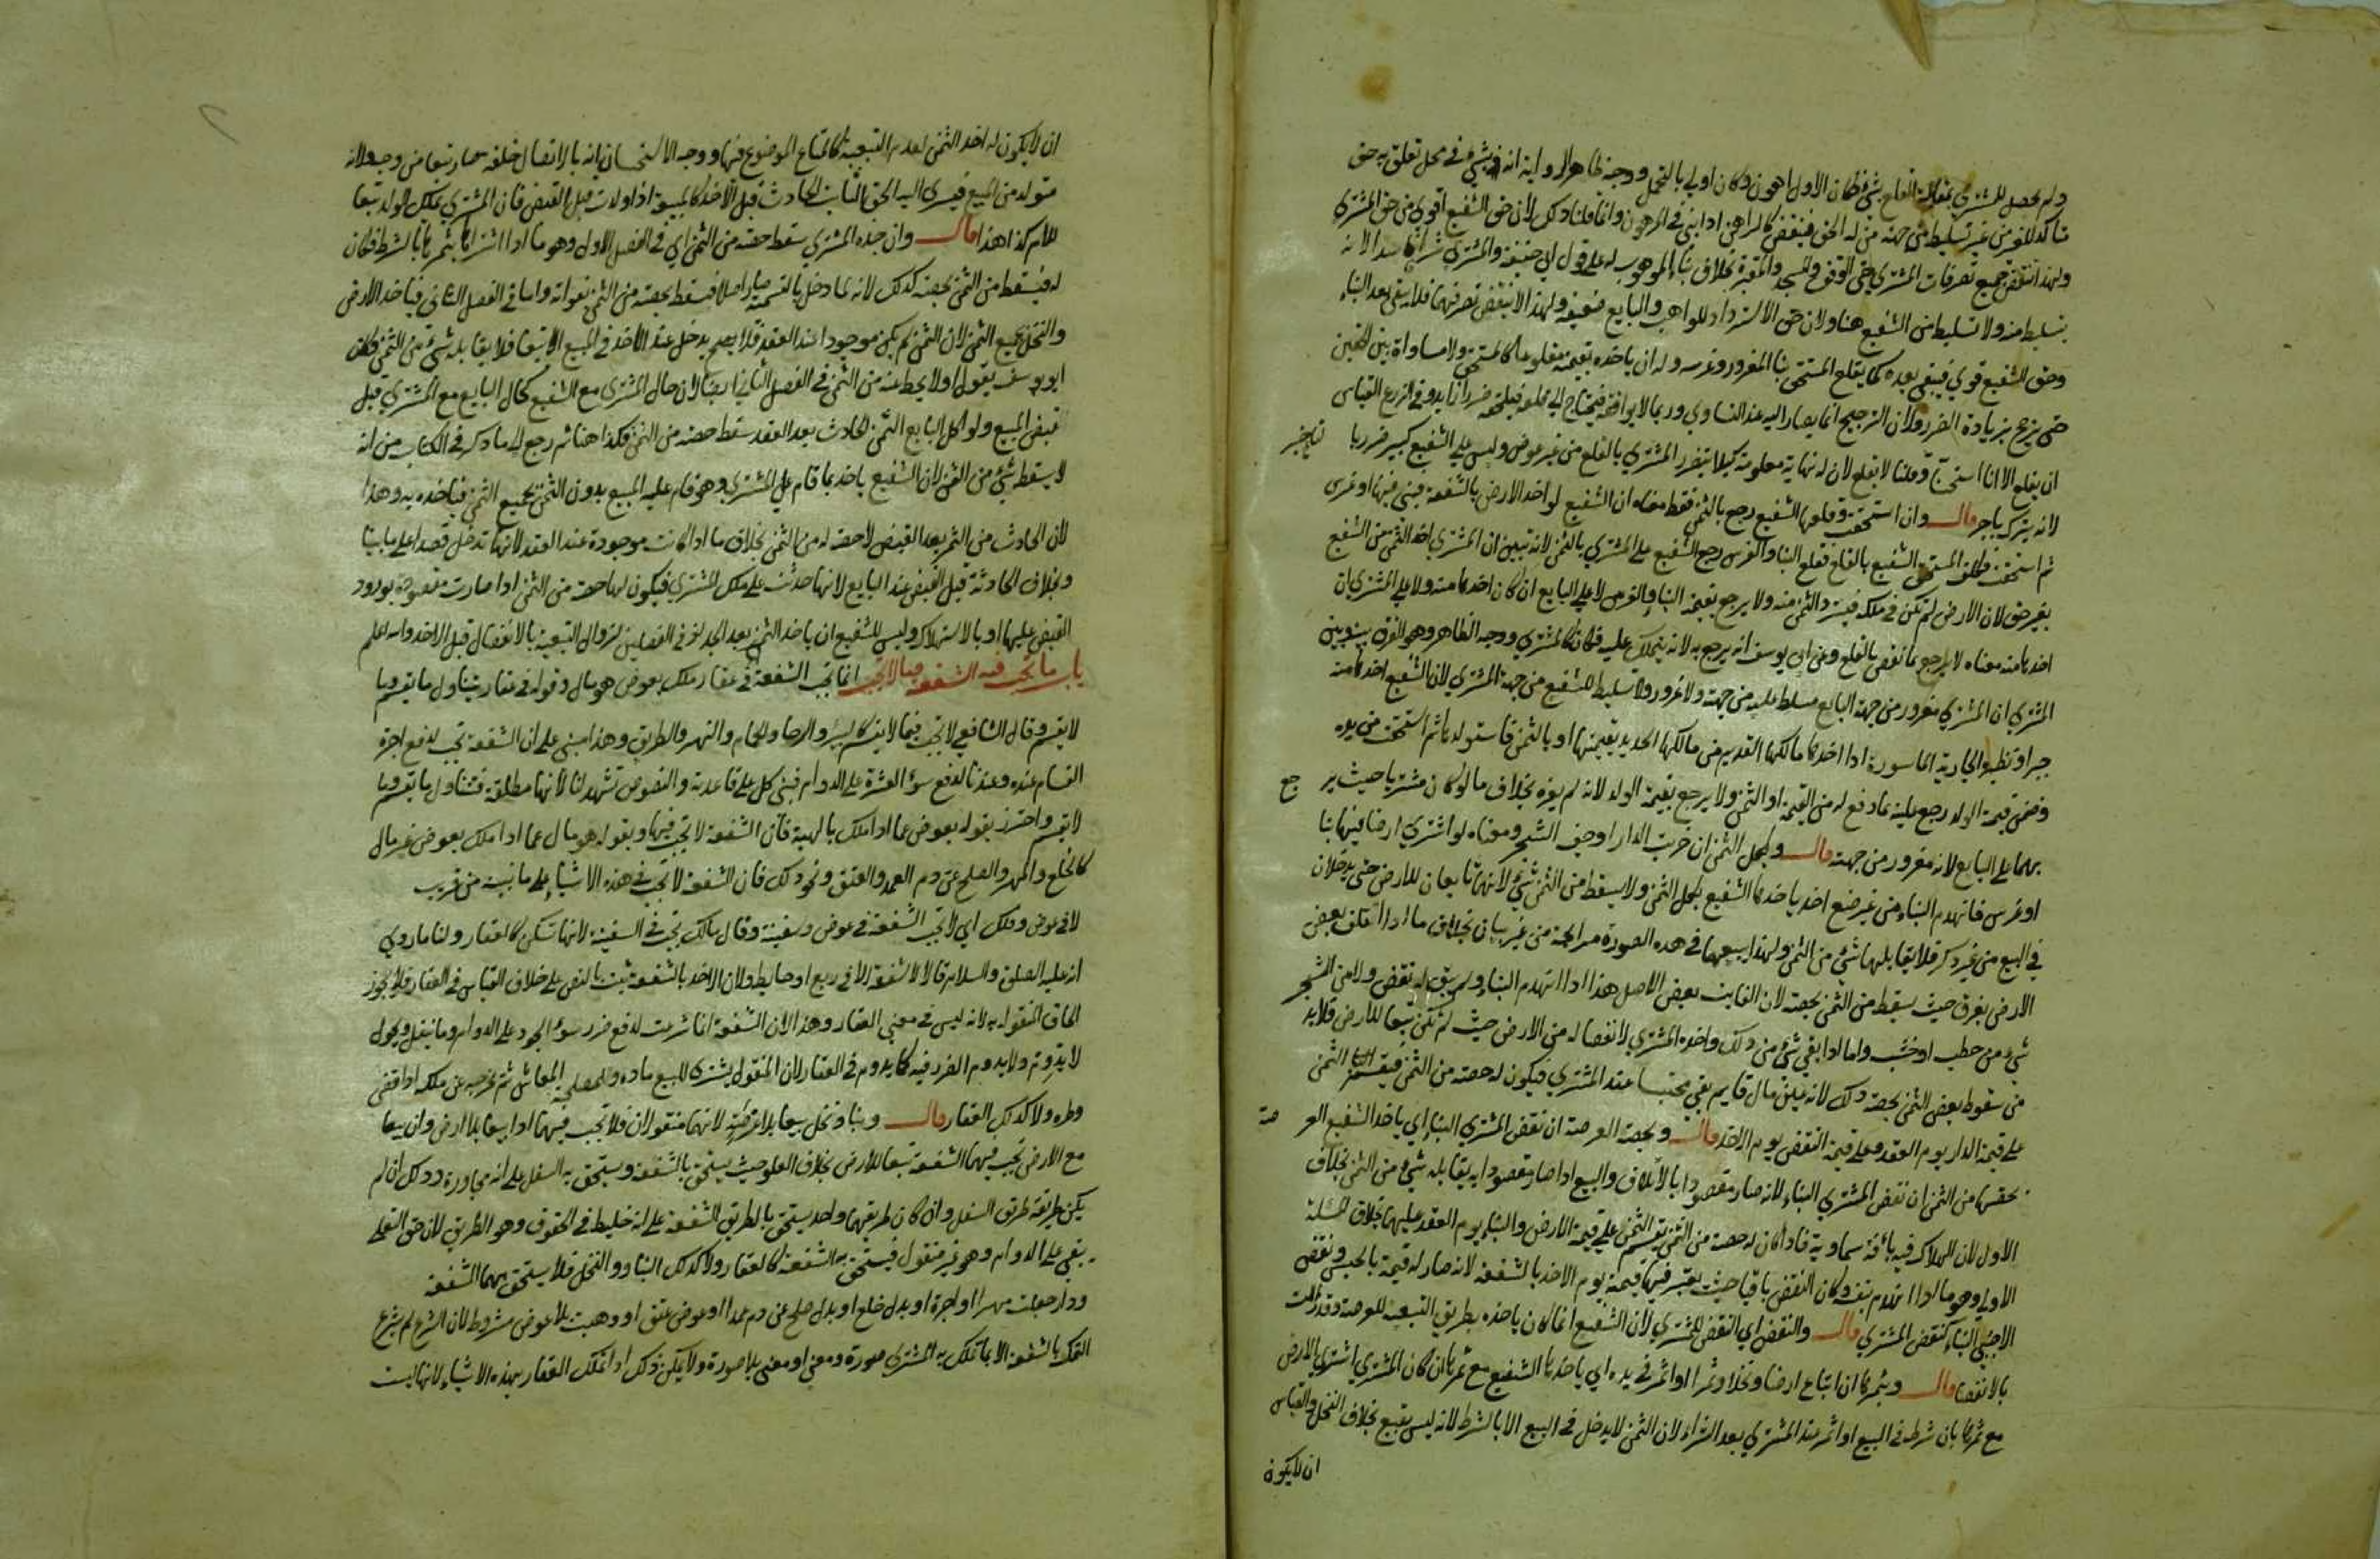 ولم يحصل للمشتري بمقابلة القلع شيء فكان الاول اهون وكان اولي بالتحمل ووجه ظاهر الرواية انه بني في محل تعلق به حق
متأكد للغير من غير تسليط من جهة من له الحق فينقض كالراهن اذا بني في المرهون وانما قلنا ذلك لان حق الشفيع اقوي من حق المشتري
ولهذا ينتقض جميع تصرفات المشتري حتى الوقف والمسجد والمقبرة بخلاف بناء الموهوب له على قول ابي حنيفة والمشتري شراء فاسدا لانه
بتسليط منه ولا تسليط من الشفيع هنا ولان حق الاسترداد للواهب والبايع ضعيف ولهذا لا ينتقض تصرفهما فلا يبقى بعد البناء
وحق الشفيع قوي فيبقى بعده كما يقلع المستحق بنا المغرور وغرسه وله ان ياخذه بقيمته مقلوعا كالمستحق ولا مساواة بين الحقين
حتى يرجح بزيادة الضرر ولان الترجيح انما يصار اليه عند التساوي وربما لا يوافقه فيحتاج الى قلعه فيلحقه ضرر زايد وفي الزرع القياس
ان يقلع الا انا استحسنا وقلنا لا يقلع لان له نهاية معلومة كيلا يتضرر المشتري بالقلع من غير عوض وليس على الشفيع كبير ضرر بالتاخير
لانه يترك باجر قال وان استحقت وقلعها الشفيع رجع بالثمن فقط معناه ان الشفيع لو اخذ الارض بالشفعة فبنى فيها او غرس
ثم استحقت فكلف المستحق الشفيع بالقلع فقلع البنا والغرس رجع الشفيع على المشتري بالثمن لانه تبين ان المشتري اخذ الثمن من الشفيع
بغير حق لان الارض لم تكن في ملكه فيسترد الثمن منه ولا يرجع بقيمة البناء والغرس لا على البايع ان كان اخذها منه ولا على المشتري ان
اخذها منه معناه لا يرجع بما نقص بالقلع وعن ابي يوسف انه يرجع به لانه يتملك عليه فكان كالمشتري ووجه الظاهر وهو الفرق بينه وبين
المشتري ان المشتري مغرور من جهة البايع مسلط عليه من جهته ولا غرور ولا تسليط للشفيع من جهة المشتري لان الشفيع اخذها منه
جبرا ونظيره الجارية الماسورة اذا اخذها مالكها القديم من مالكها الجديد بقيمتها او بالثمن فاستولدها ثم استحقت من يده
وضمن قيمة الولد رجع عليه بما دفع له من القيمة او الثمن ولا يرجع بقيمة الولد لانه لم يغره بخلاف ما لو كان مشتريا حيث يرجع
بهما على البايع لانه مغرور من جهته قال وبكل الثمن ان خربت الدار او جف الشجر ومعناه لو اشتري ارضا فيها بنا
او غرس فانهدم البناء من غير صنع احد ياخذها الشفيع بكل الثمن ولا يسقط من الثمن شيء لانهما تابعان للارض حتى يدخلان
في البيع من غير ذكر فلا يقابلهما شيء من الثمن ولهذا يبيعهما في هذه الصورة مرابحة من غير بيان بخلاف ما اذا تلف بعض
الارض بغرق حيث يسقط من الثمن بحصته لان الفايت بعض الاصل هذا اذا انهدم البناء ولم يبق له نقض ولا من الشجر
شيء من حطب او خشب واما اذا بقي شيء من ذلك واخذه المشتري لانفصاله من الارض حيث لم تكن تبعا للارض فلا بد
من سقوط بعض الثمن بحصة ذلك لانه عين مال قايم بقي محتبسا عند المشتري فيكون له حصته من الثمن فيقسم الثمن
على قيمة الدار يوم العقد وعلى قيمة النقض يوم الاخذ قال وبحصة العرصة ان نقض المشتري البناء اي ياخذ الشفيع العرصة
بحصتها من الثمن ان نقض المشتري البناء لانه صار مقصودا بالاتلاف والبيع اذا صار مقصودا به يقابله شيء من الثمن بخلاف
الاول لان الهلاك فيه بآفة سماوية فاذا كان له حصة من الثمن يقسم الثمن على قيمة الارض والبناء يوم العقد عليهما بخلاف المسئلة
الاولي وهو ما اذا انهدم بنفسه وكان النقض باقيا حيث يعتبر فيها قيمته يوم الاخذ بالشفعة لانه صار له قيمة بالحبس ونقض
الاجنبي البناء كنقض المشتري قال والنقض اي النقض للمشتري لان الشفيع انما كان ياخذه بطريق التبعية للعرصة وقد زالت
بالانفصال قال وبثمرها ان ابتاع ارضا ونخلا وثمرا او اثمر في يده اي ياخذها الشفيع مع ثمرها ان كان المشتري اشتري الارض
مع ثمرها بان شرطه في البيع او اثمر عند المشتري بعد الشراء لان الثمر لا يدخل في البيع الا بالشرط لانه ليس بتبع بخلاف النخل والقياس
ان لا يكون
ان لا يكون له اخذ الثمر لعدم التبعية كالمتاع الموضوع فيها ووجه الاستحسان انه بالاتصال خلقة صار تبعا من وجه ولانه
متولد من المبيع فيسري اليه الحق الثابت الحادث قبل الاخذ كالمبيعة اذا ولدت قبل القبض فان المشتري يملك الولد تبعا
للام كذا هذا قال وان جذه المشتري سقط حصته من الثمن اي في الفصل الاول وهو ما اذا اشتراها بثمرها بالشرط فكان
له فيسقط من الثمن بحصته كذلك لانه لما دخل بالتسمية صار اصلا فيسقط بحصته من الثمن بفواته واما في الفصل الثاني فياخذ الارض
والنخل بجميع الثمن لان الثمر لم يكن موجودا عند العقد فلا يدخل عند الاخذ في المبيع الا تبعا فلا يقابله شيء من الثمن وكان
ابو يوسف يقول اولا يحط عنه من الثمن في الفصل الثاني ايضا لان حال المشتري مع الشفيع كحال البايع مع المشتري قبل
قبض المبيع ولو اكل البايع الثمر الحادث بعد العقد سقط حصته من الثمن فكذا هنا ثم رجع الى ما ذكر في الكتاب من انه
لا يسقط شيء من الثمن لان الشفيع ياخذ بما قام على المشتري وهو قام عليه المبيع بدون الثمر بجميع الثمن فياخذه به وهذا
لان الحادث من الثمر بعد القبض لا حصة له من الثمن بخلاف ما اذا كانت موجودة عند العقد لانها تدخل قصدا على ما بينا
وبخلاف الحادثة قبل القبض عند البايع لانها حدثت على ملك المشتري فيكون لها حصة من الثمن اذا صارت مقصودة بورود
القبض عليها او بالاستهلاك وليس للشفيع ان ياخذ الثمر بعد الجذاذ في الفصلين لزوال التبعية بالانفصال قبل الاخذ والله اعلم
باب ما تجب فيه الشفعة وما لا تجب انما تجب الشفعة في عقار ملك بعوض هو مال وقوله في عقار يتناول ما يقسم وما
لا يقسم وقال الشافعي لا تجب فيما لا يقسم كالبئر والرحا والحمام والنهر والطريق وهذا مبني على ان الشفعة تجب لدفع اجرة
القسام عنده وعندنا لدفع سوء العشرة على الدوام فيبنى كل على قاعدته والنصوص تشهد لنا لانها مطلقة فتتناول ما يقسم وما
لا يقسم واحترز بقوله بعوض عما اذا ملك بالهبة فان الشفعة لا تجب فيها وبقوله هو مال عما اذا ملك بعوض غير مال
كالخلع والمهر والصلح عن دم العمد والعتق ونحو ذلك فان الشفعة لا تجب في هذه الاشياء على ما نبينه من قريب
لا في عرض وفلك اي لا تجب الشفعة في عرض وسفينة وقال مالك تجب في السفينة لانها تسكن كالعقار ولنا ما روي
انه عليه الصلوة والسلام قال لا شفعة الا في ربع او حايط ولان الاخذ بالشفعة ثبت بالنص على خلاف القياس في العقار فلا يجوز
الحاق المنقول به لانه ليس في معني العقار وهذا لان الشفعة انما شرعت لدفع ضرر سوء الجوار على الدوام وما ينقل ويحول
لا يدوم ولا يدوم الضرر فيه كما يدوم في العقار لان المنقول يشتري للبيع عادة ولمصلحة المعاش ثم يخرجه عن ملكه اذا قضى
وطره ولا كذلك العقار قال وبنا ونخل بيعا بلا عرصة لانهما منقولان فلا تجب فيهما اذا بيعا بلا ارض وان بيعا
مع الارض تجب فيهما الشفعة تبعا للارض بخلاف العلو حيث يستحق بالشفعة ويستحق به السفل على انه مجاورة وذلك ان لم
يكن طريقه طريق السفل وان كان طريقهما واحد يستحق بالطريق الشفعة على انه خليط في الحقوق وهو الطريق لان حق التعلي
يبقى على الدوام وهو غير منقول فيستحق به الشفعة كالعقار ولا كذلك البناء والنخل فلا يستحق بهما الشفعة
ودار جعلت مهرا او اجرة او بدل خلع او بدل صلح عن دم عمد او عوض عتق او وهبت بلا عوض مشروط لان الشرع لم يشرع
التملك بالشفعة الا بما تملك به المشتري صورة ومعنى او معنى بلا صورة ولا يمكن ذلك اذا تملك العقار بهذه الاشياء لانها ليست